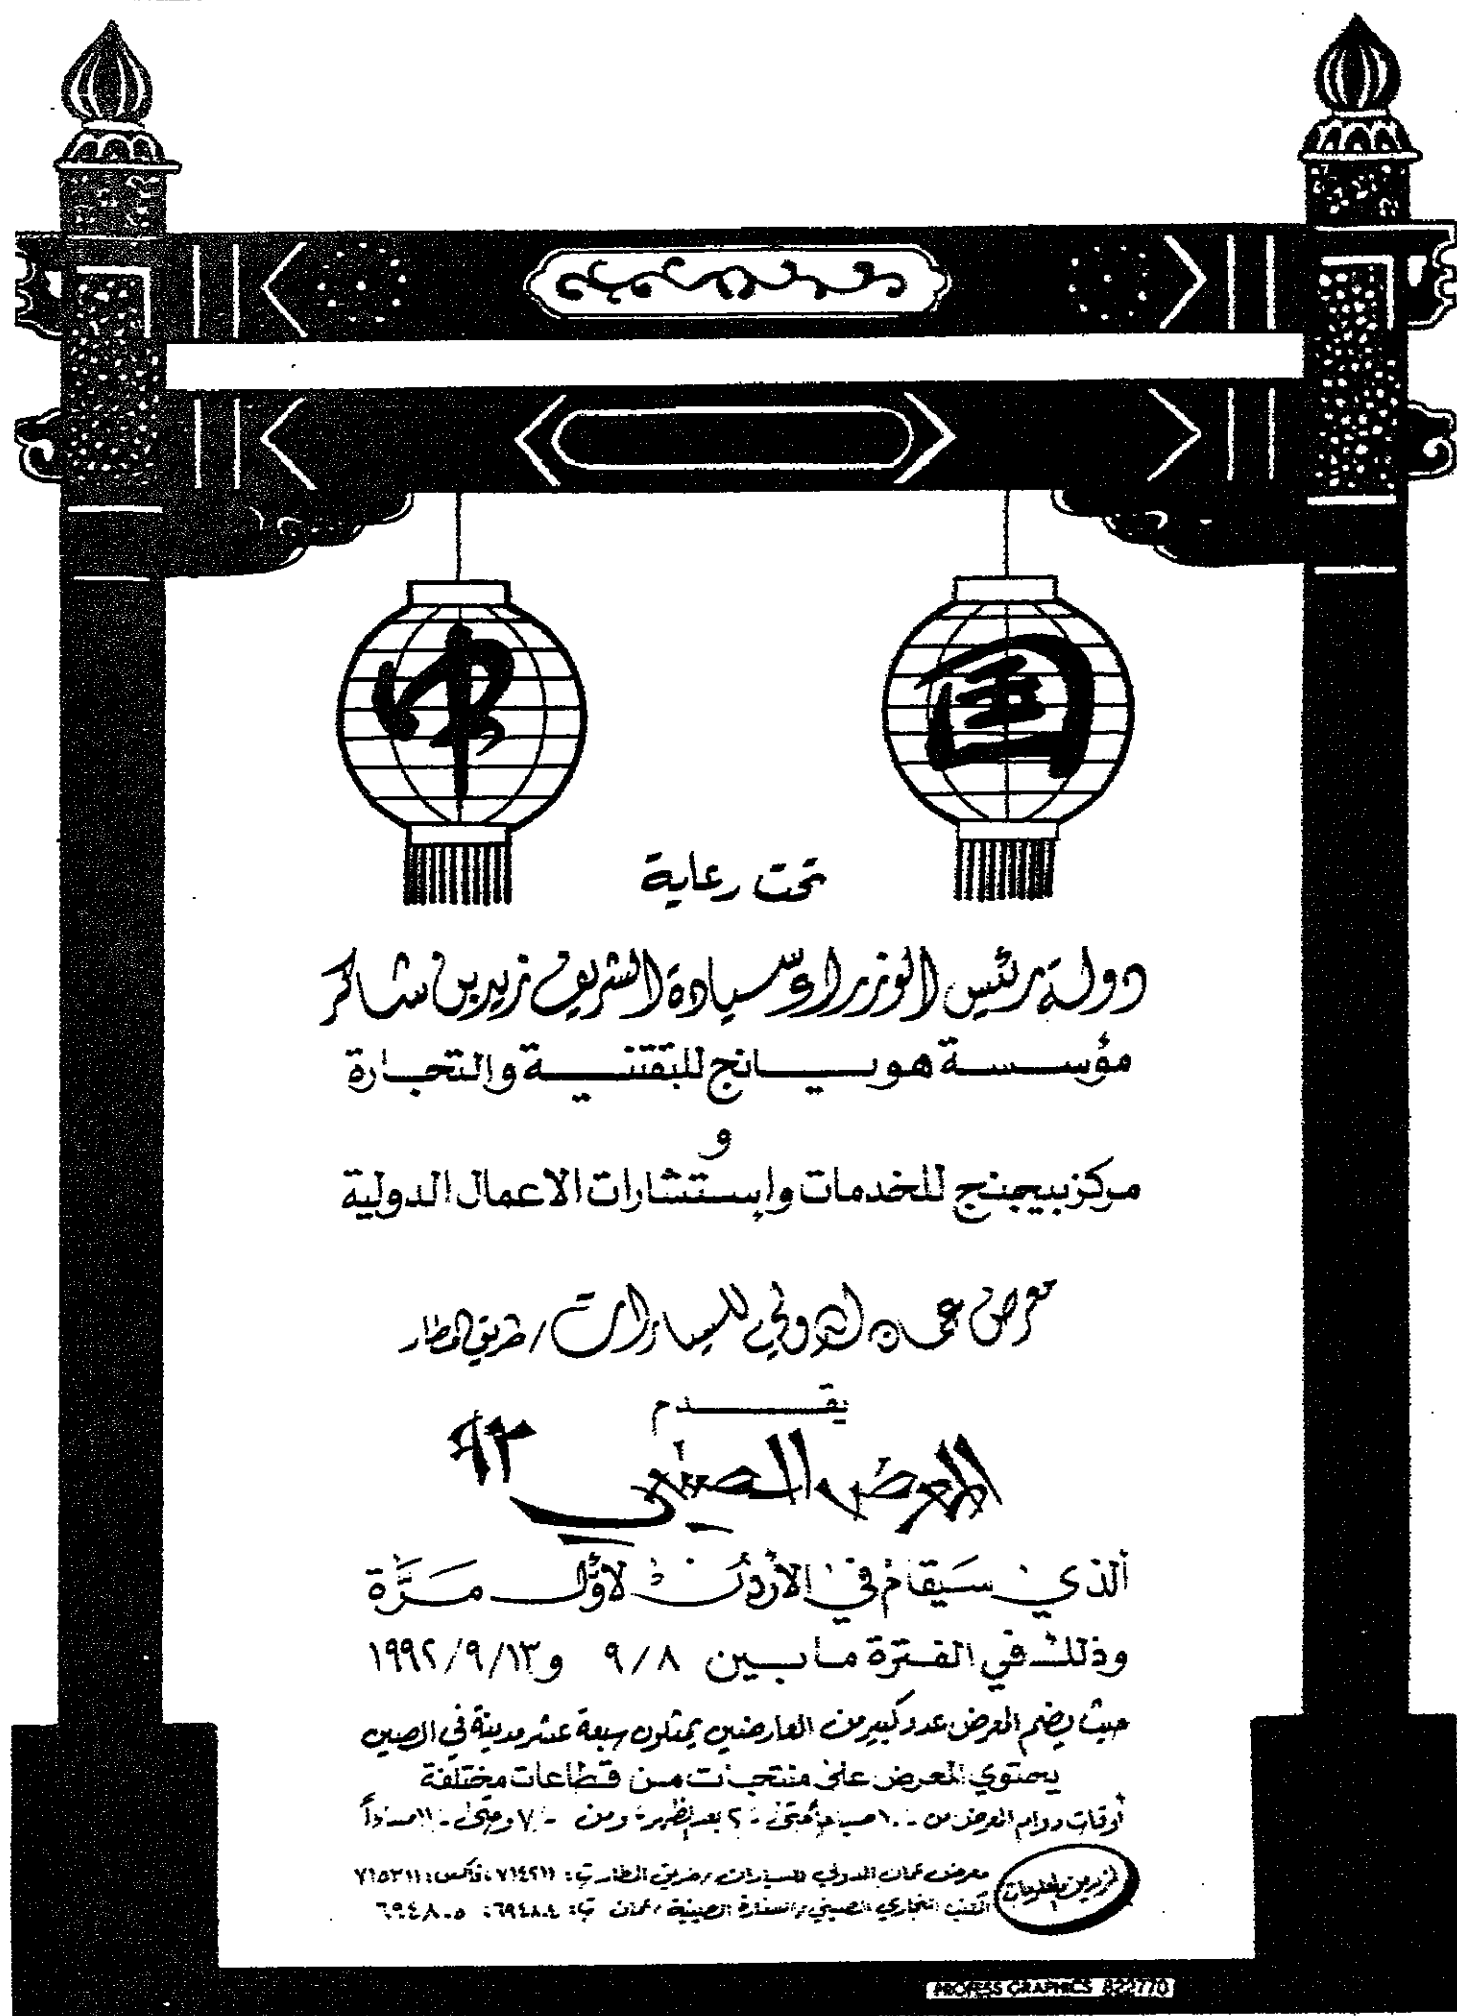 中 国
تحت رعاية
دولة رئيس الوزراء سيادة الشريف زيد بن شاكر
مؤسسة هويانج للتقنية والتجارة
و
مركز بيجنج للخدمات وإستشارات الاعمال الدولية
معرض عمان الدولي للسيارات / طريق المطار
يقدم
المعرض الصيني ٩٢
الذي سَيقام في الأردن لأوّل مَرَّة
وذلك في الفترة ما بين ٩/٨ و ١٩٩٢/٩/١٣
حيث يضم المعرض عدد كبير من العارضين يمثلون سبعة عشر مدينة في الصين
يحتوي المعرض على منتجات من قطاعات مختلفة
أوقات دوام المعرض من ١٠٠٠ صباحاً حتى ٢٠٠ بعد الظهر ومن ٧٠٠ وحتى ١١٠٠ مساءاً
لمزيد من المعلومات
معرض عمان الدولي للسيارات / طريق المطار ت: ٧١٤٢١١، فاكس: ٧١٥٣١١
المكتب التجاري الصيني / السفارة الصينية / عمان ت: ٦٩٤٨٠٤، ٦٩٤٨٠٥
PROFESS GRAPHICS 822770